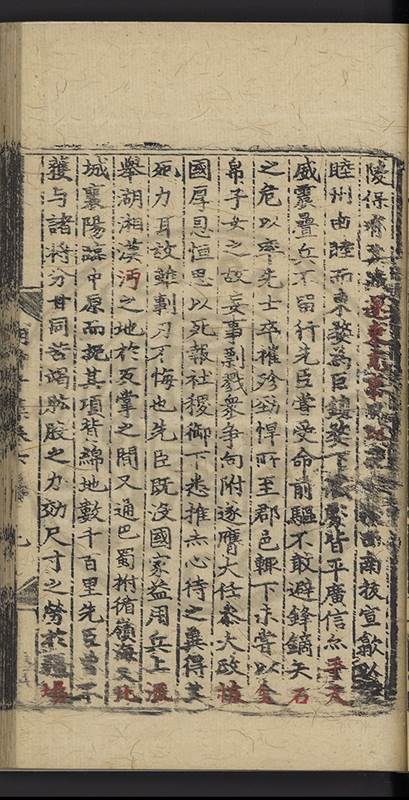 陵保有東西南拔宣歙以
睦州由睦而東婺為巨鎮婺下郡皆平廣信亦奉天
威震疊兵不留行先臣嘗受命前驅不敢避鋒鏑矢石
之危以率先士卒摧殄勁悍所至郡邑輒下未嘗以金
帛子女之故妄事剽戮眾争向附遂膺大任叅大政懷
國厚恩恒思以死報社稷御下悉推赤心待之冀得其
死力耳故雖剚刃不悔也先臣既沒國家益用兵上㳺
舉湖湘漢沔之地於反掌之間又通巴蜀柎循嶺海又北
城襄陽臨中原而扼其項背綿地數千百里先臣曾不
獲与諸將分甘同苦竭肱股之力効尺寸之勞於疆場